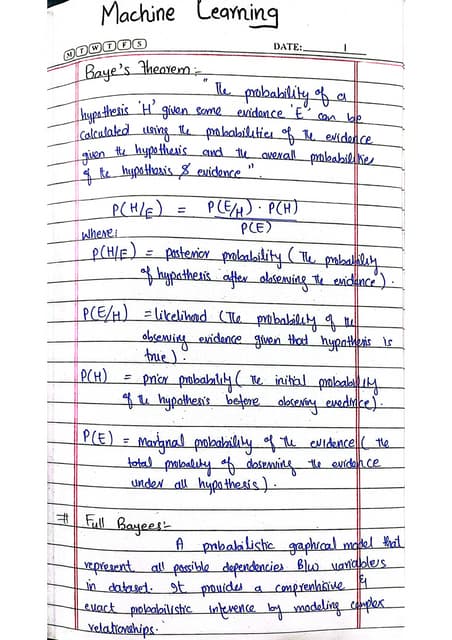 Machine Learning
M T W T F S
DATE: 1
Baye's Theorem :-
"The probability of a
hypothesis 'H' given some evidence 'E' can be
calculated using the probabilities of the evidence
given the hypothesis and the overall probabilities
of the hypothesis & evidence".
P(H/E) = P(E/H) · P(H)
P(E)
where:
P(H/E) = posterior probability (The probability
of hypothesis after observing the evidence).
P(E/H) = likelihood (The probability of the
observing evidence given that hypothesis is
true).
P(H) = prior probability (The initial probability
of the hypothesis before observing evedince).
P(E) = marginal probability of the evidence (the
total probality of dosenving the evidence
under all hypothesis).
# Full Bayees:-
A probabilistic graphical model that
represent all possible dependencies B/w variablers
in dataset. It provides a comprenhisive &
exact probabilistic interence by modeling complex
relationships.